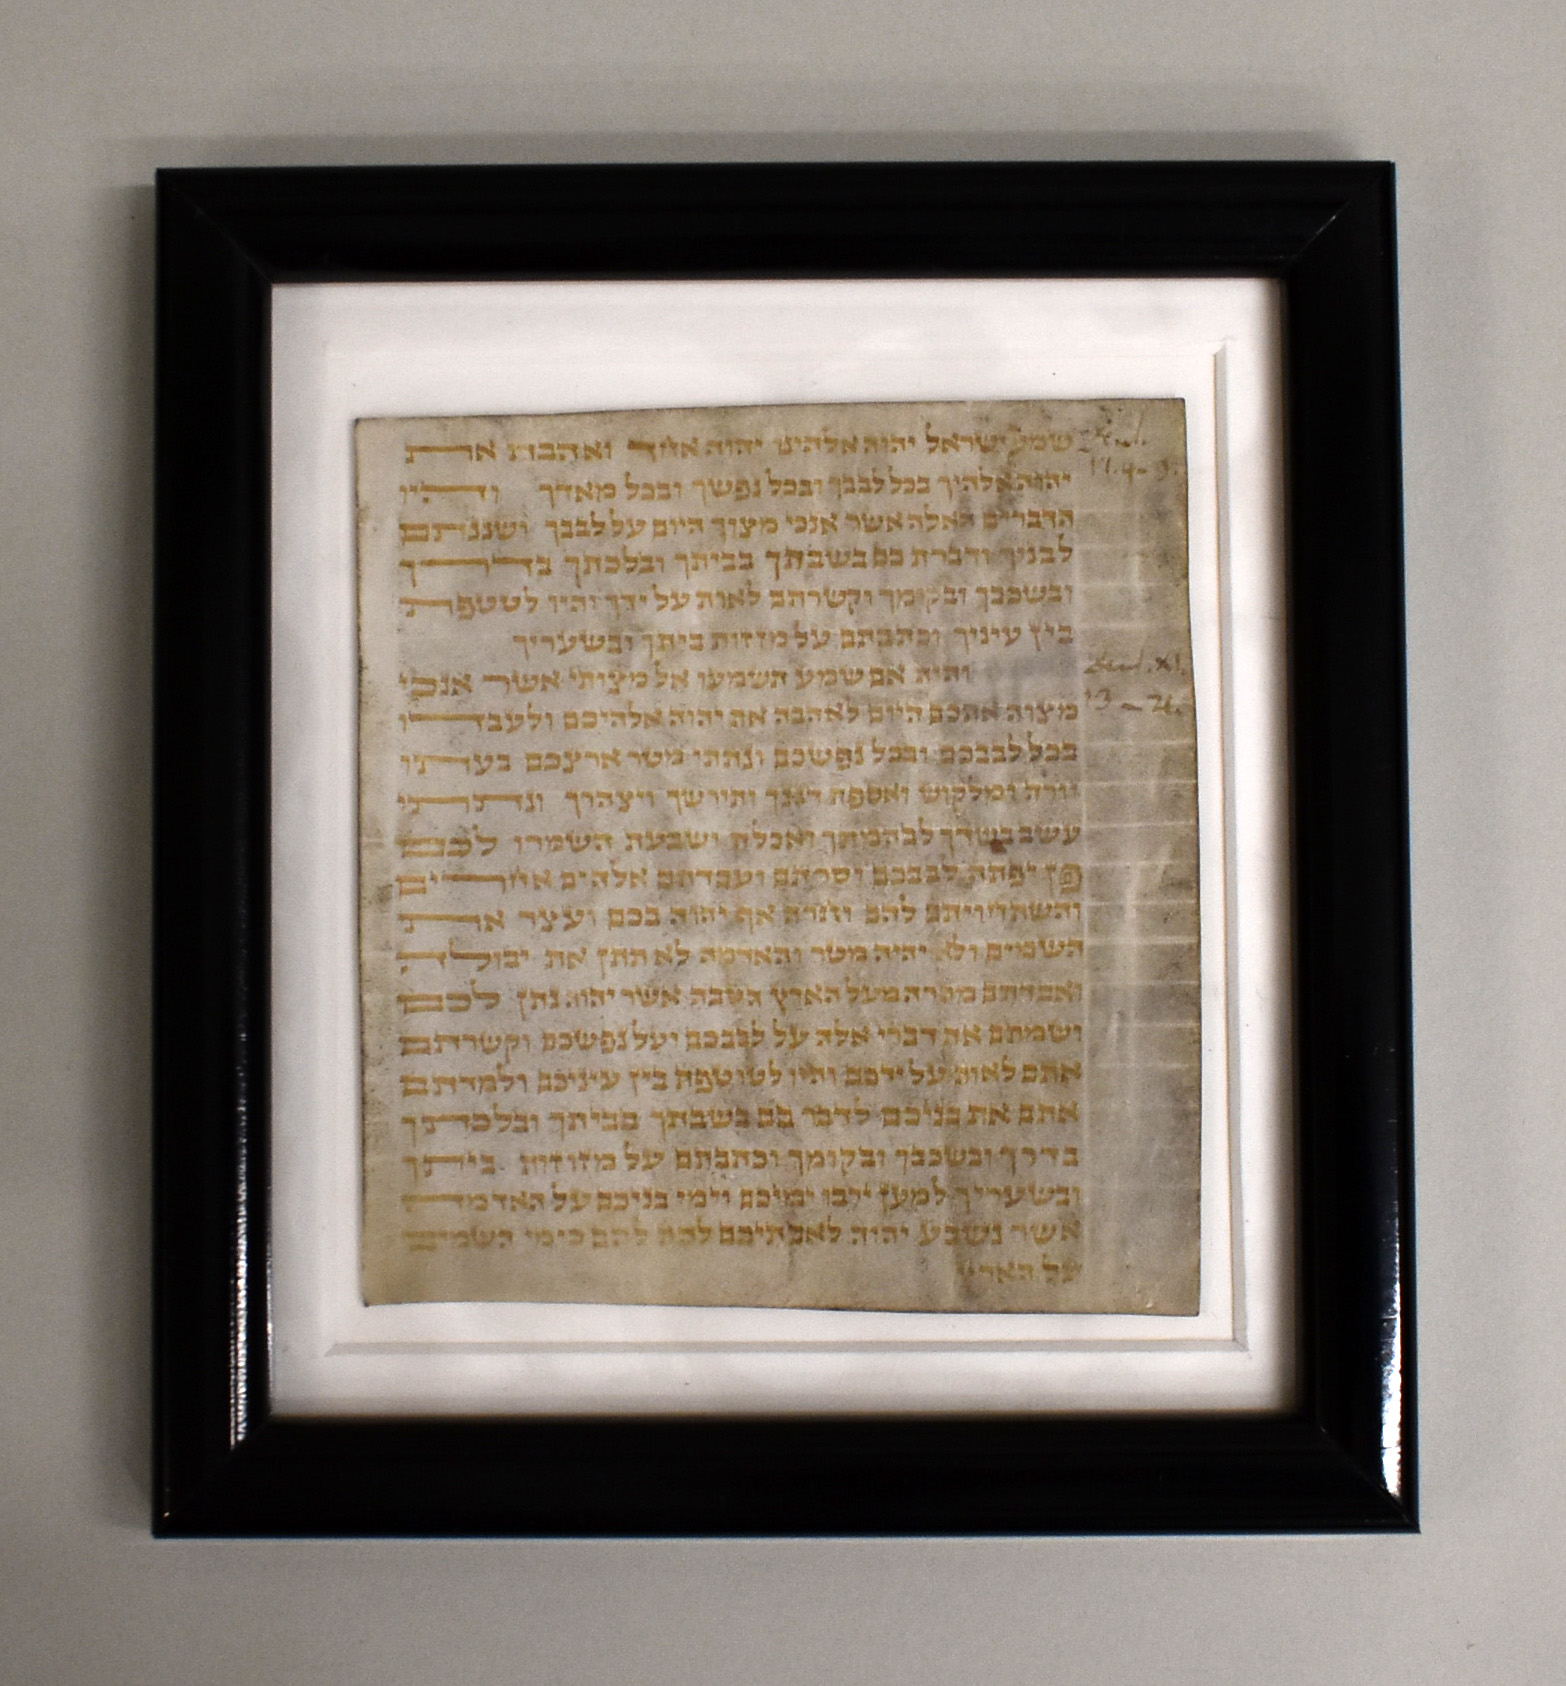 שמע ישראל יהוה אלהינו יהוה אחד ואהבת את
יהוה אלהיך בכל לבבך ובכל נפשך ובכל מאדך והיו
הדברים האלה אשר אנכי מצוך היום על לבבך ושננתם
לבניך ודברת בם בשבתך בביתך ובלכתך בדרך
ובשכבך ובקומך וקשרתם לאות על ידך והיו לטטפת
בין עיניך וכתבתם על מזזות ביתך ובשעריך
והיה אם שמע תשמעו אל מצותי אשר אנכי
מצוה אתכם היום לאהבה את יהוה אלהיכם ולעבדו
בכל לבבכם ובכל נפשכם ונתתי מטר ארצכם בעתו
יורה ומלקוש ואספת דגנך ותירשך ויצהרך ונתתי
עשב בשדך לבהמתך ואכלת ושבעת השמרו לכם
פן יפתה לבבכם וסרתם ועבדתם אלהים אחרים
והשתחויתם להם וחרה אף יהוה בכם ועצר את
השמים ולא יהיה מטר והאדמה לא תתן את יבולה
ואבדתם מהרה מעל הארץ הטבה אשר יהוה נתן לכם
ושמתם את דברי אלה על לבבכם ועל נפשכם וקשרתם
אתם לאות על ידכם והיו לטוטפת בין עיניכם ולמדתם
אתם את בניכם לדבר בם בשבתך בביתך ובלכתך
בדרך ובשכבך ובקומך וכתבתם על מזוזות ביתך
ובשעריך למען ירבו ימיכם וימי בניכם על האדמה
אשר נשבע יהוה לאבתיכם לתת להם כימי השמים
על הארץ
XI.
13 - 21.